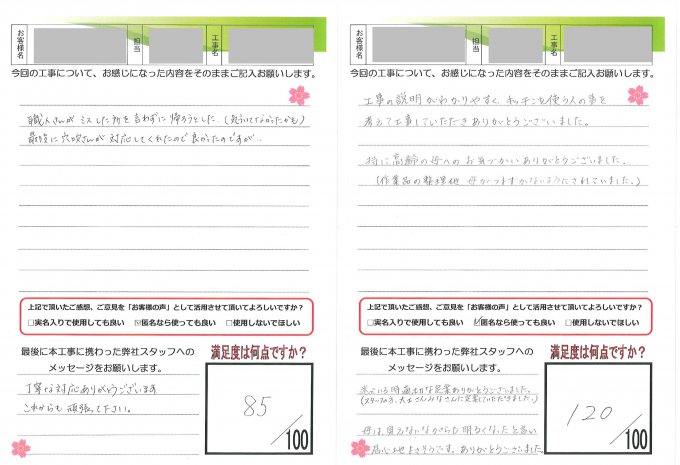 お客様名
担当
工事名
今回の工事について、お感じになった内容をそのままご記入お願いします。
職人さんが ミスした所を言わずに 帰ろうとした。(気づいてなかったかも)
最後に 穴吹さんが 対応してくれたので 良かったのですが…
上記で頂いたご感想、ご意見を「お客様の声」として活用させて頂いてよろしいですか?
□実名入りで使用しても良い ☑匿名なら使っても良い □使用しないでほしい
最後に本工事に携わった弊社スタッフへの
メッセージをお願いします。
丁寧な対応ありがとうございます
これからも 頑張って下さい。
満足度は何点ですか?
85
/100
お客様名
担当
工事名
今回の工事について、お感じになった内容をそのままご記入お願いします。
工事の説明がわかりやすく、キッチンを使う人の事を
考えて工事していただきありがとうございました。
特に高齢の母へのお気づかいありがとうございました。
(作業品の整理他 母がつまずかないようにされていました。)
上記で頂いたご感想、ご意見を「お客様の声」として活用させて頂いてよろしいですか?
□実名入りで使用しても良い ☑匿名なら使っても良い □使用しないでほしい
最後に本工事に携わった弊社スタッフへの
メッセージをお願いします。
適切な ありがとうございました。
(スタッフの方、大工さんみなさんに していただきました。)
母は、見えないながらも 明るくなったと言い
居心地よさそうです。ありがとうございました
満足度は何点ですか?
120
/100